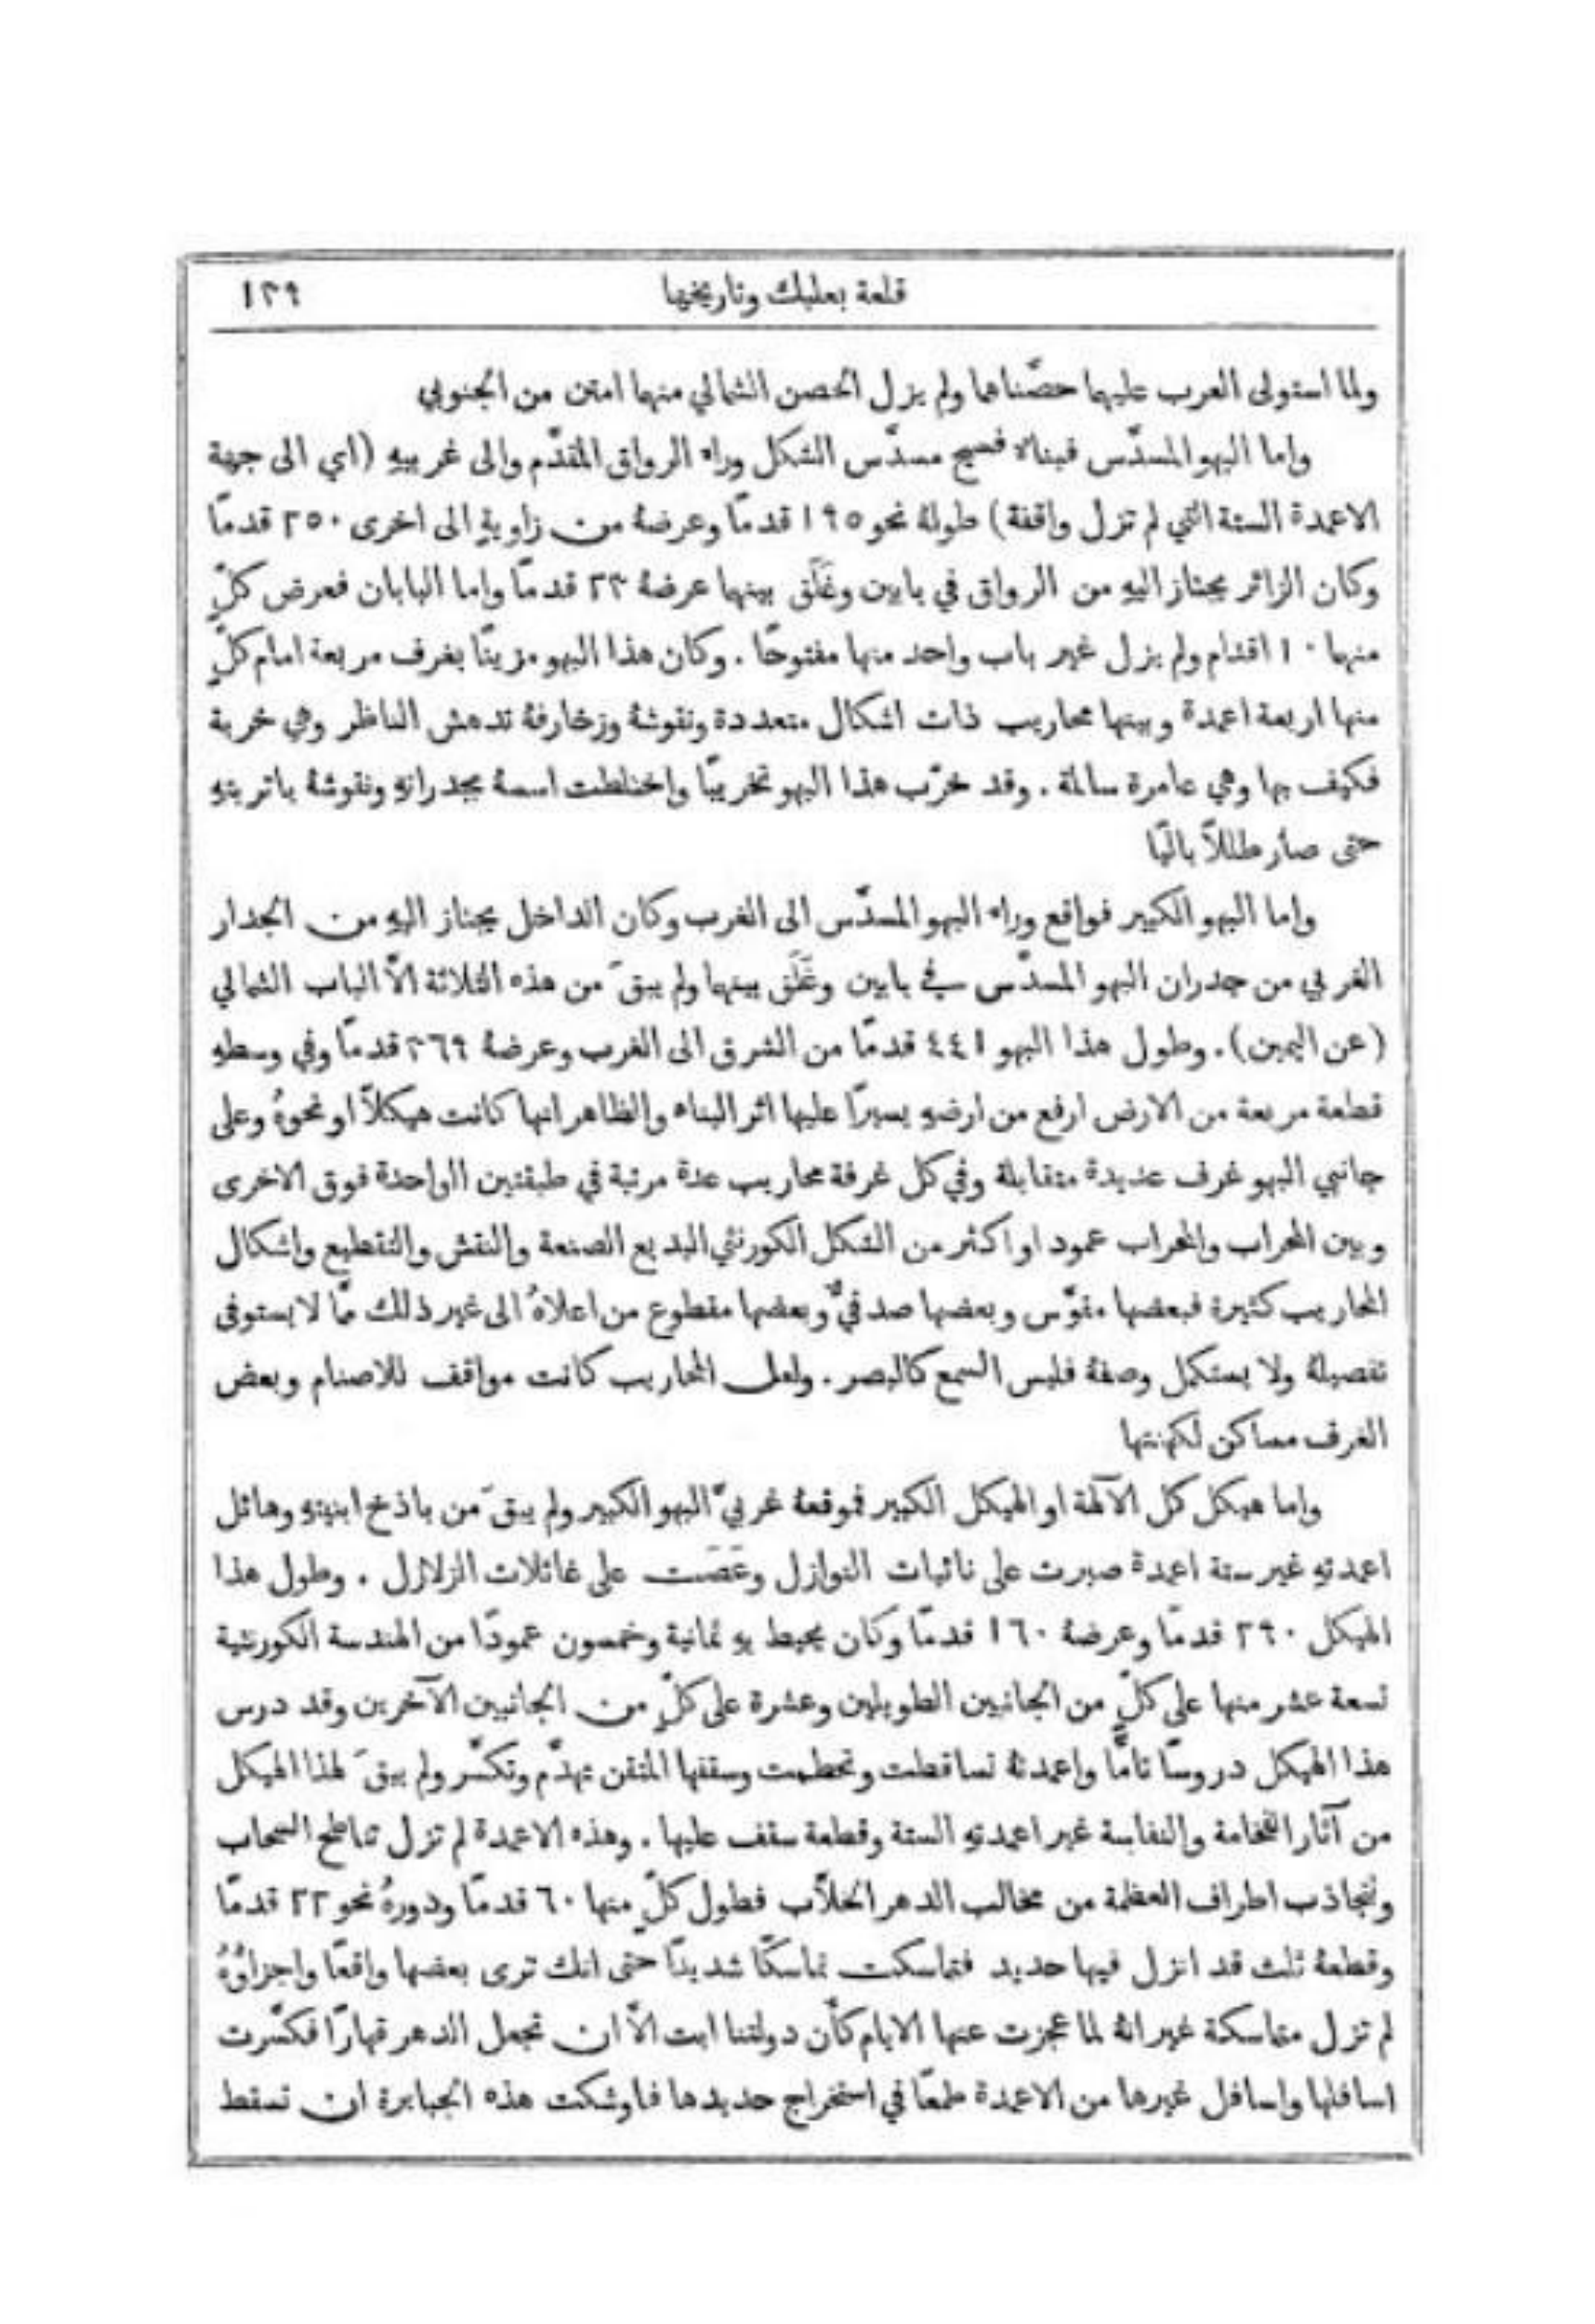 قلعة بعلبك وتاريخها ١٣٩
ولما استولى العرب عليهما حصّناهما ولم يزل الحصن الشمالي منهما امتن من الجنوبي
واما البهو المسدّس فبنالا فسيح مسدّس الشكل وراء الرواق المقدّم والى غربيهِ (اي الى جهة
الاعمدة الستة التي لم تزل واقفة) طولهُ نحو ١٩٥ قدمًا وعرضهُ من زاويةٍ الى اخرى ٢٥٠ قدمًا
وكان الزائر يجتاز اليهِ من الرواق في بابين وغَلَق بينهما عرضهُ ٢٣ قدمًا واما البابان فعرض كلٍّ
منهما ١٠ اقدام ولم يزل غير باب واحد منها مفتوحًا . وكان هذا البهو مزينًا بغرف مربعة امام كلٍّ
منها اربعة اعمدة وبينها محاريب ذات اشكال متعددة ونقوشهُ وزخارفهُ تدهش الناظر وهي خربة
فكيف بها وهي عامرة سالمة . وقد خرّب هذا البهو تخريبًا واختلطت اسسهُ بجدرانهِ ونقوشهُ باتربتهِ
حتى صار طللاً باليًا
واما البهو الكبير فواقع وراء البهو المسدّس الى الغرب وكان الداخل يجتاز اليهِ من الجدار
الغربي من جدران البهو المسدّس في بابين وغَلَق بينهما ولم يبقَ من هذه الثلاثة الاَّ الباب الشمالي
(عن اليمين) . وطول هذا البهو ٤٤١ قدمًا من الشرق الى الغرب وعرضهُ ٣٦٩ قدمًا وفي وسطهِ
قطعة مربعة من الارض ارفع من ارضهِ يسيرًا عليها اثر البناء والظاهر انها كانت هيكلاً او نحوهُ وعلى
جانبي البهو غرف عديدة متقابلة وفي كل غرفة محاريب عدة مرتبة في طبقتين الواحدة فوق الاخرى
وبين المحراب والمحراب عمود او اكثر من الشكل الكورنثي البديع الصنعة والنقش والتقطيع واشكال
المحاريب كثيرة فبعضها مقوّس وبعضها صدفيٌّ وبعضها مقطوع من اعلاهُ الى غير ذلك ممَّا لا يستوفى
تفصيلهُ ولا يستكمل وصفهُ فليس السمع كالبصر . ولعل المحاريب كانت مواقف للاصنام وبعض
الغرف مساكن لكهنتها
واما هيكل كل الآلهة او الهيكل الكبير فموقعهُ غربيّ البهو الكبير ولم يبقَ من باذخ ابنيتهِ وهائل
اعمدتهِ غير ستة اعمدة صبرت على نائبات النوازل وعَصَت على غائلات الزلازل . وطول هذا
الهيكل ٢٩٠ قدمًا وعرضهُ ١٦٠ قدمًا وكان يحيط بهِ ثمانية وخمسون عمودًا من الهندسة الكورنثية
تسعة عشر منها على كلٍّ من الجانبين الطويلين وعشرة على كلٍّ من الجانبين الآخرين وقد درس
هذا الهيكل دروسًا تامًّا واعمدتهُ تساقطت وتحطمت وسقفها المتقن تهدَّم وتكسَّر ولم يبقَ لهذا الهيكل
من آثار الفخامة والنفاسة غير اعمدتهِ الستة وقطعة سقف عليها . وهذه الاعمدة لم تزل تناطح السحاب
وتجاذب اطراف العظمة من مخالب الدهر الخلاَّب فطول كلٍّ منها ٦٠ قدمًا ودورهُ نحو ٢٢ قدمًا
وقطعهُ ثلث قد انزل فيها حديد فتماسكت تماسكًا شديدًا حتى انك ترى بعضها واقعًا واجزاؤهُ
لم تزل متماسكة غير انهُ لما عجزت عنها الايام كأن دولتنا ابت الاَّ ان تجعل الدهر قهارًا فكسَّرت
اسافلها واسافل غيرها من الاعمدة طمعًا في استخراج حديدها فاوشكت هذه الجبابرة ان تسقط